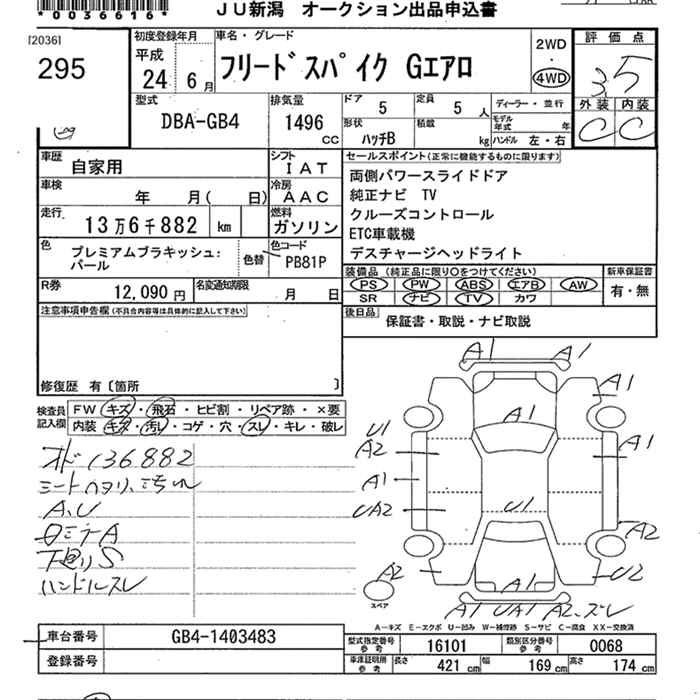 *0036616*
JU新潟 オークション出品申込書
[20361
295
初度登録年月
平成
24 6月
車名・グレード
フリードスパイク Gエアロ
2WD
・
4WD
評価点
3.5
外装 内装
C C
型式
DBA-GB4
排気量
1496
CC
ドア
5
定員
5 人
ディーラー・並行
形状
ハッチB
積載
kg
モデル年式 年
ハンドル 左・右
車歴
自家用
シフト
IAT
車検
年 月( 日)
冷房
AAC
走行
13万6千882 km
燃料
ガソリン
色
プレミアムブラキッシュ:
パール
色替
色コード
PB81P
R券
12,090 円
名変通知期限
月 日
セールスポイント(正常に機能するものに限ります)
両側パワースライドドア
純正ナビ TV
クルーズコントロール
ETC車載機
デスチャージヘッドライト
装備品 (純正品に限り○をつけてください)
PS PW ABS エアB AW
SR ナビ TV カワ
新車保証書
有・無
後日品
保証書・取説・ナビ取説
注意事項申告欄(不具合内容等は具体的に記入して下さい)
修復歴 有〔箇所 〕
検査員
記入欄
FW キズ・飛石・ヒビ割・リペア跡・×要
内装 キズ・汚れ・コゲ・穴・スレ・キレ・破レ
オド 136882
シートヘタリ、汚れ
A、U
下廻りS
ハンドルスレ
A1 A1
A1
A1
U1
A2
A1
A1
UA2
U1
A2
A2
A1
U2
A1 UA1 A2、ズレ
スペア
A−キズ E−エクボ U−凹み W−補修跡 S−サビ C−腐食 XX−交換済
車台番号
GB4-1403483
登録番号
型式指定番号
参考
16101
類別区分番号
参考
0068
車庫証明用
参考
長さ 421 cm 幅 169 cm 高さ 174 cm